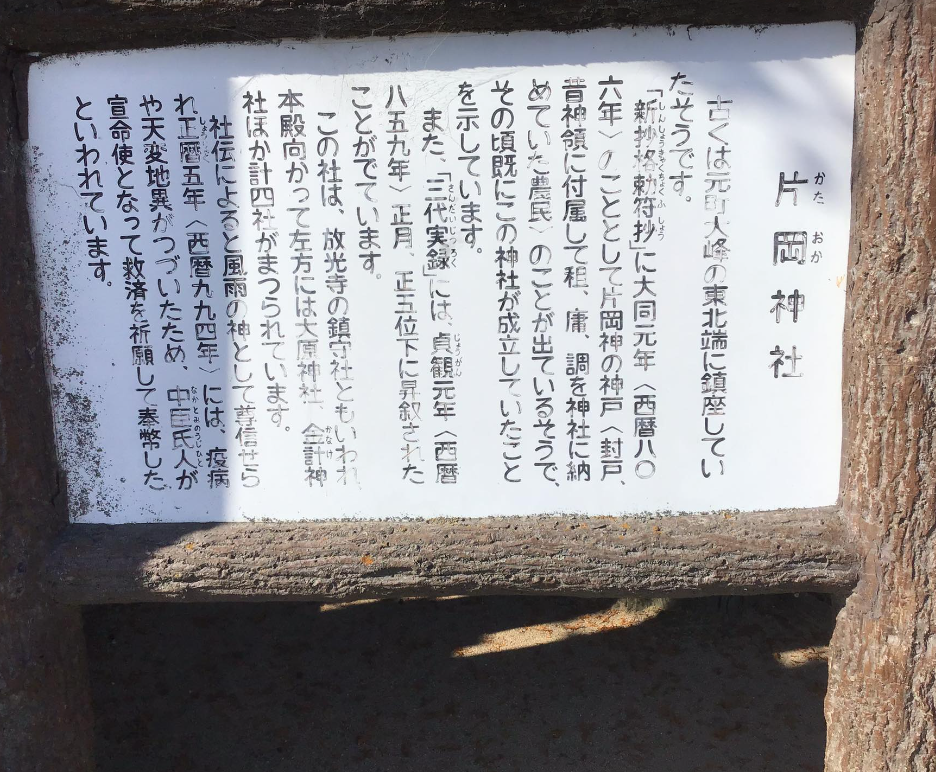 片岡神社
かた おか
古くは元町大峰の東北端に鎮座してい
たそうです。
「新抄格勅符抄」に大同元年〈西暦八〇
しんしょうきゃくちょくふしょう
六年〉のこととして片岡神の神戸〈封戸、
昔神領に付属して租、庸、調を神社に納
めていた農民〉のことが出ているそうで、
その頃既にこの神社が成立していたこと
を示しています。
また、「三代実録」には、貞観元年〈西暦
さんだいじつろく じょうがん
八五九年〉正月、正五位下に昇叙された
ことがでています。
この社は、放光寺の鎮守社ともいわれ
本殿向かって左方には大原神社、金計神
かなけ
社ほか計四社がまつられています。
社伝によると風雨の神として尊信せら
れ正暦五年〈西暦九九四年〉には、疫病
しょうりゃく
や天変地異がつづいたため、中臣氏人が
なかとみのうじひと
宣命使となって救済を祈願して奉幣した
といわれています。